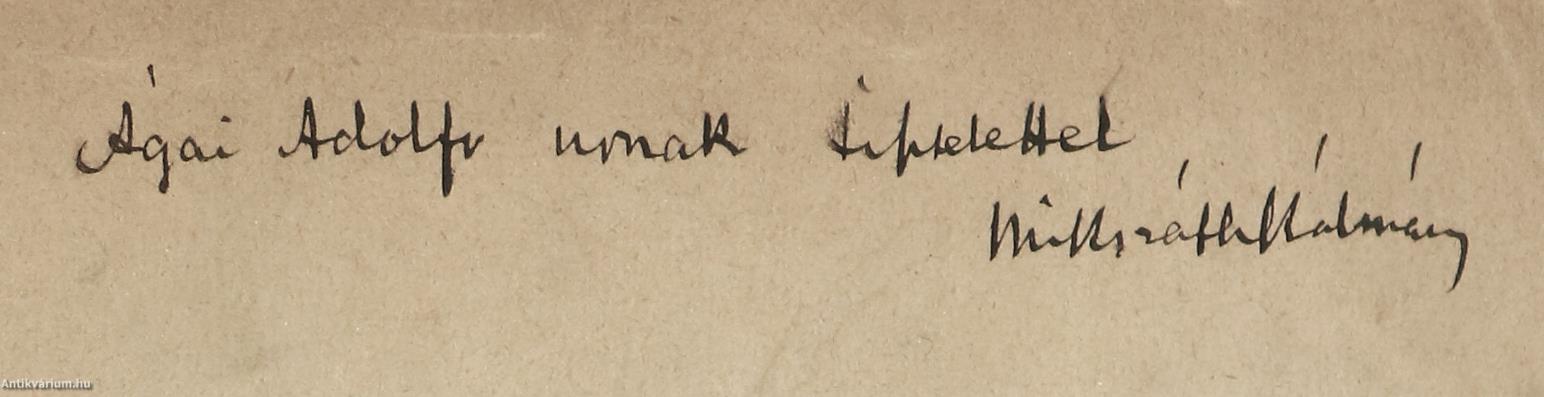 Ágai Adolf urnak tisztelettel
Mikszáth Kálmán
Antikvárium.hu